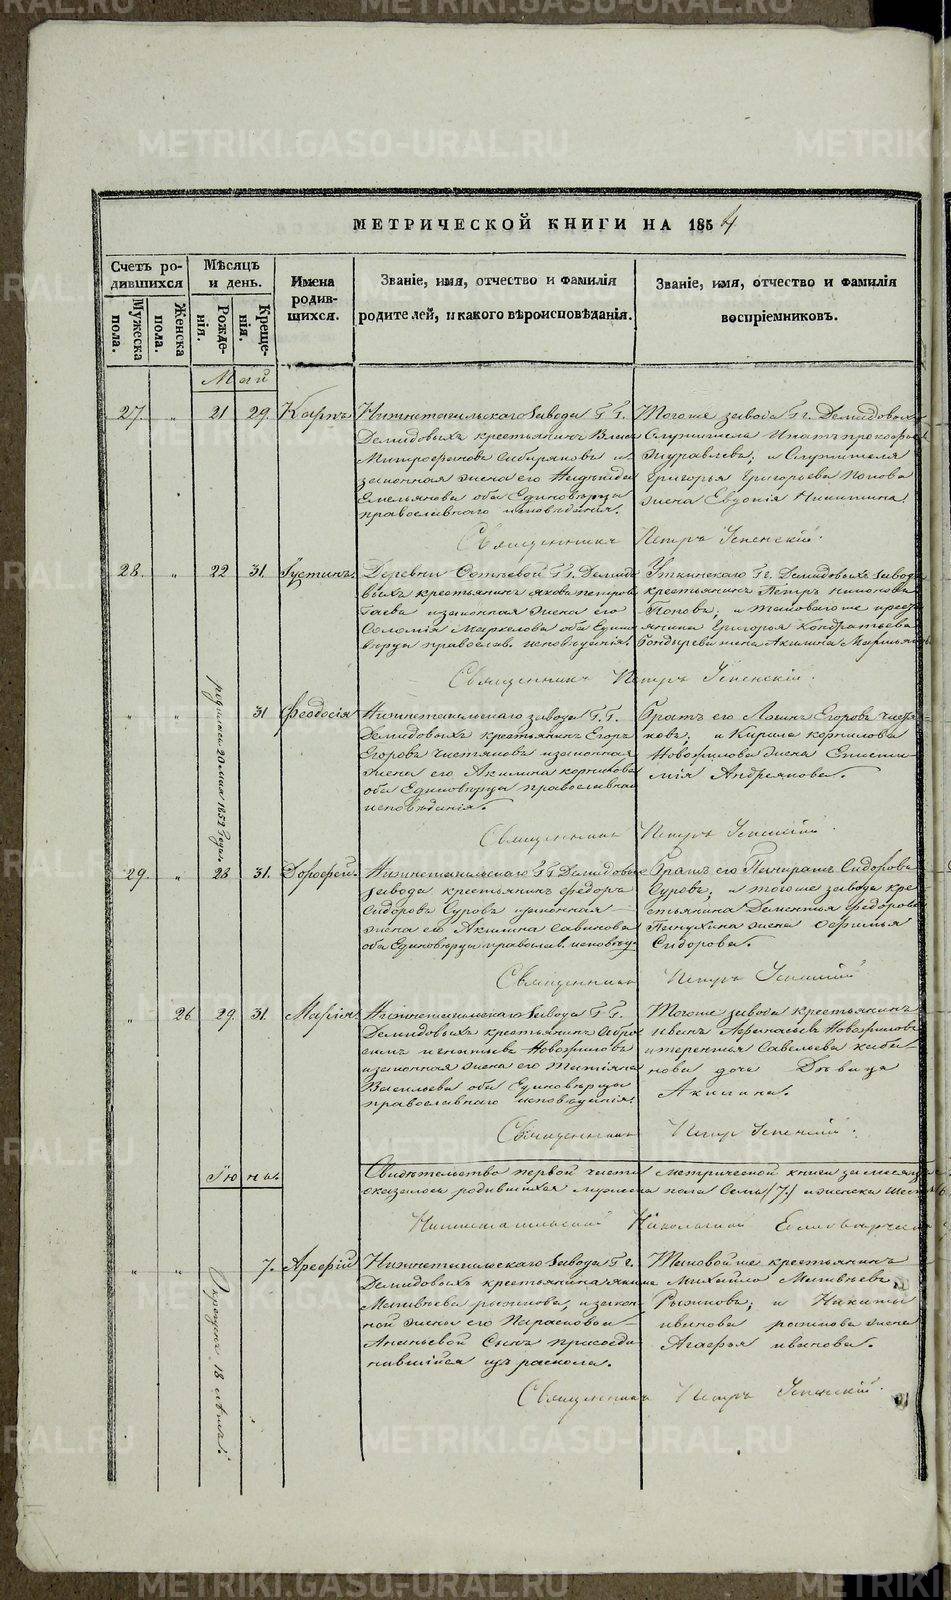 МЕТРИЧЕСКОЙ КНИГИ НА 1854
Счетъ родившихся
Мужеска пола.
Женска пола.
Мѣсяцъ и день.
Рожденія.
Крещенія.
Имена родившихся.
Званіе, имя, отчество и фамилія
родителей, и какого вѣроисповѣданія.
Званіе, имя, отчество и фамилія
воспріемниковъ.
Май
27. " 21 29. Карпъ
Нижнетагильскаго завода Гг.
Демидовыхъ крестьянинъ
Митрофановъ Сибиряковъ и
законная жена его
Емельянова оба Единовѣрцы
православнаго исповѣданія.
Тогоже завода Гг. Демидовыхъ
Служитель Игнатъ Прокофьевъ
Журавлевъ, и Служителя
Григорья Григорьева Попова
жена Евдокія Никитина.
Священникъ Петръ Успенскій.
28. " 22 31. Іустинъ.
Деревни Гг. Демидовыхъ
крестьянинъ Яковъ Петровъ
Гаевъ и законная жена его
Соломія Маркелова оба Единовѣрцы
православ. исповѣданія.
Уткинскаго Гг. Демидовыхъ завода
крестьянинъ Петръ
Поповъ; и таковагоже крестьянина
Григорья Кондратьева
жена Акилина
Священникъ Петръ Успенскій.
" " родилась 20 мая 1852 года. 31 Феодосія
Нижнетагильскаго завода Гг.
Демидовыхъ крестьянинъ Егоръ
Егоровъ Чистяковъ и законная
жена его Акилина Корнилова
оба Единовѣрцы православнаго
исповѣданія.
Братъ его Егоровъ Чистяковъ;
и Кирила Корнилова
Новожилова жена Епистимія
Андреянова.
Священникъ Петръ Успенскій.
29. " 28 31. Дорофей.
Нижнетагильскаго Гг. Демидовыхъ
завода крестьянинъ Федоръ
Сидоровъ Суровъ и законная
жена его Акилина Савинова
оба Единовѣрцы православ. исповѣд.
Братъ его Сидоровъ
Суровъ; и тогоже завода крестьянина
Дементья Федорова
жена Офимья
Сидорова.
Священникъ Петръ Успенскій
" 26 29. 31. Марія.
Нижнетагильскаго завода Гг.
Демидовыхъ крестьянинъ Амвросимъ
Игнатьевъ Новожиловъ
и законная жена его Татіяна
Васильева оба Единовѣрцы
православнаго исповѣданія.
Тогоже завода крестьянинъ
Иванъ Афанасьевъ Новожиловъ
и Терентья Савельева
дочь Дѣвица
Акилина.
Священникъ Петръ Успенскій.
Свидѣтельство первой части метрической книги за май
оказалось родившихся мужеска пола Семь (7.) и женска
Нижнетагильской Николаевской Единовѣрческой
Іюнь.
" " Окрещенъ 18 лѣтъ. 7. Арефій
Нижнетагильскаго завода Гг.
Демидовыхъ крестьянина
Матвѣева Рыжкова, и законной
жены его Парасковьи
Ананьевой Сынъ присоединившійся
изъ раскола.
Таковойже крестьянинъ
Михайло Матвѣевъ
Рыжковъ; и Никиты
Иванова Рыжкова жена
Агафья Иванова.
Священникъ Петръ Успенскій.
METRIKI.GASO-URAL.RU